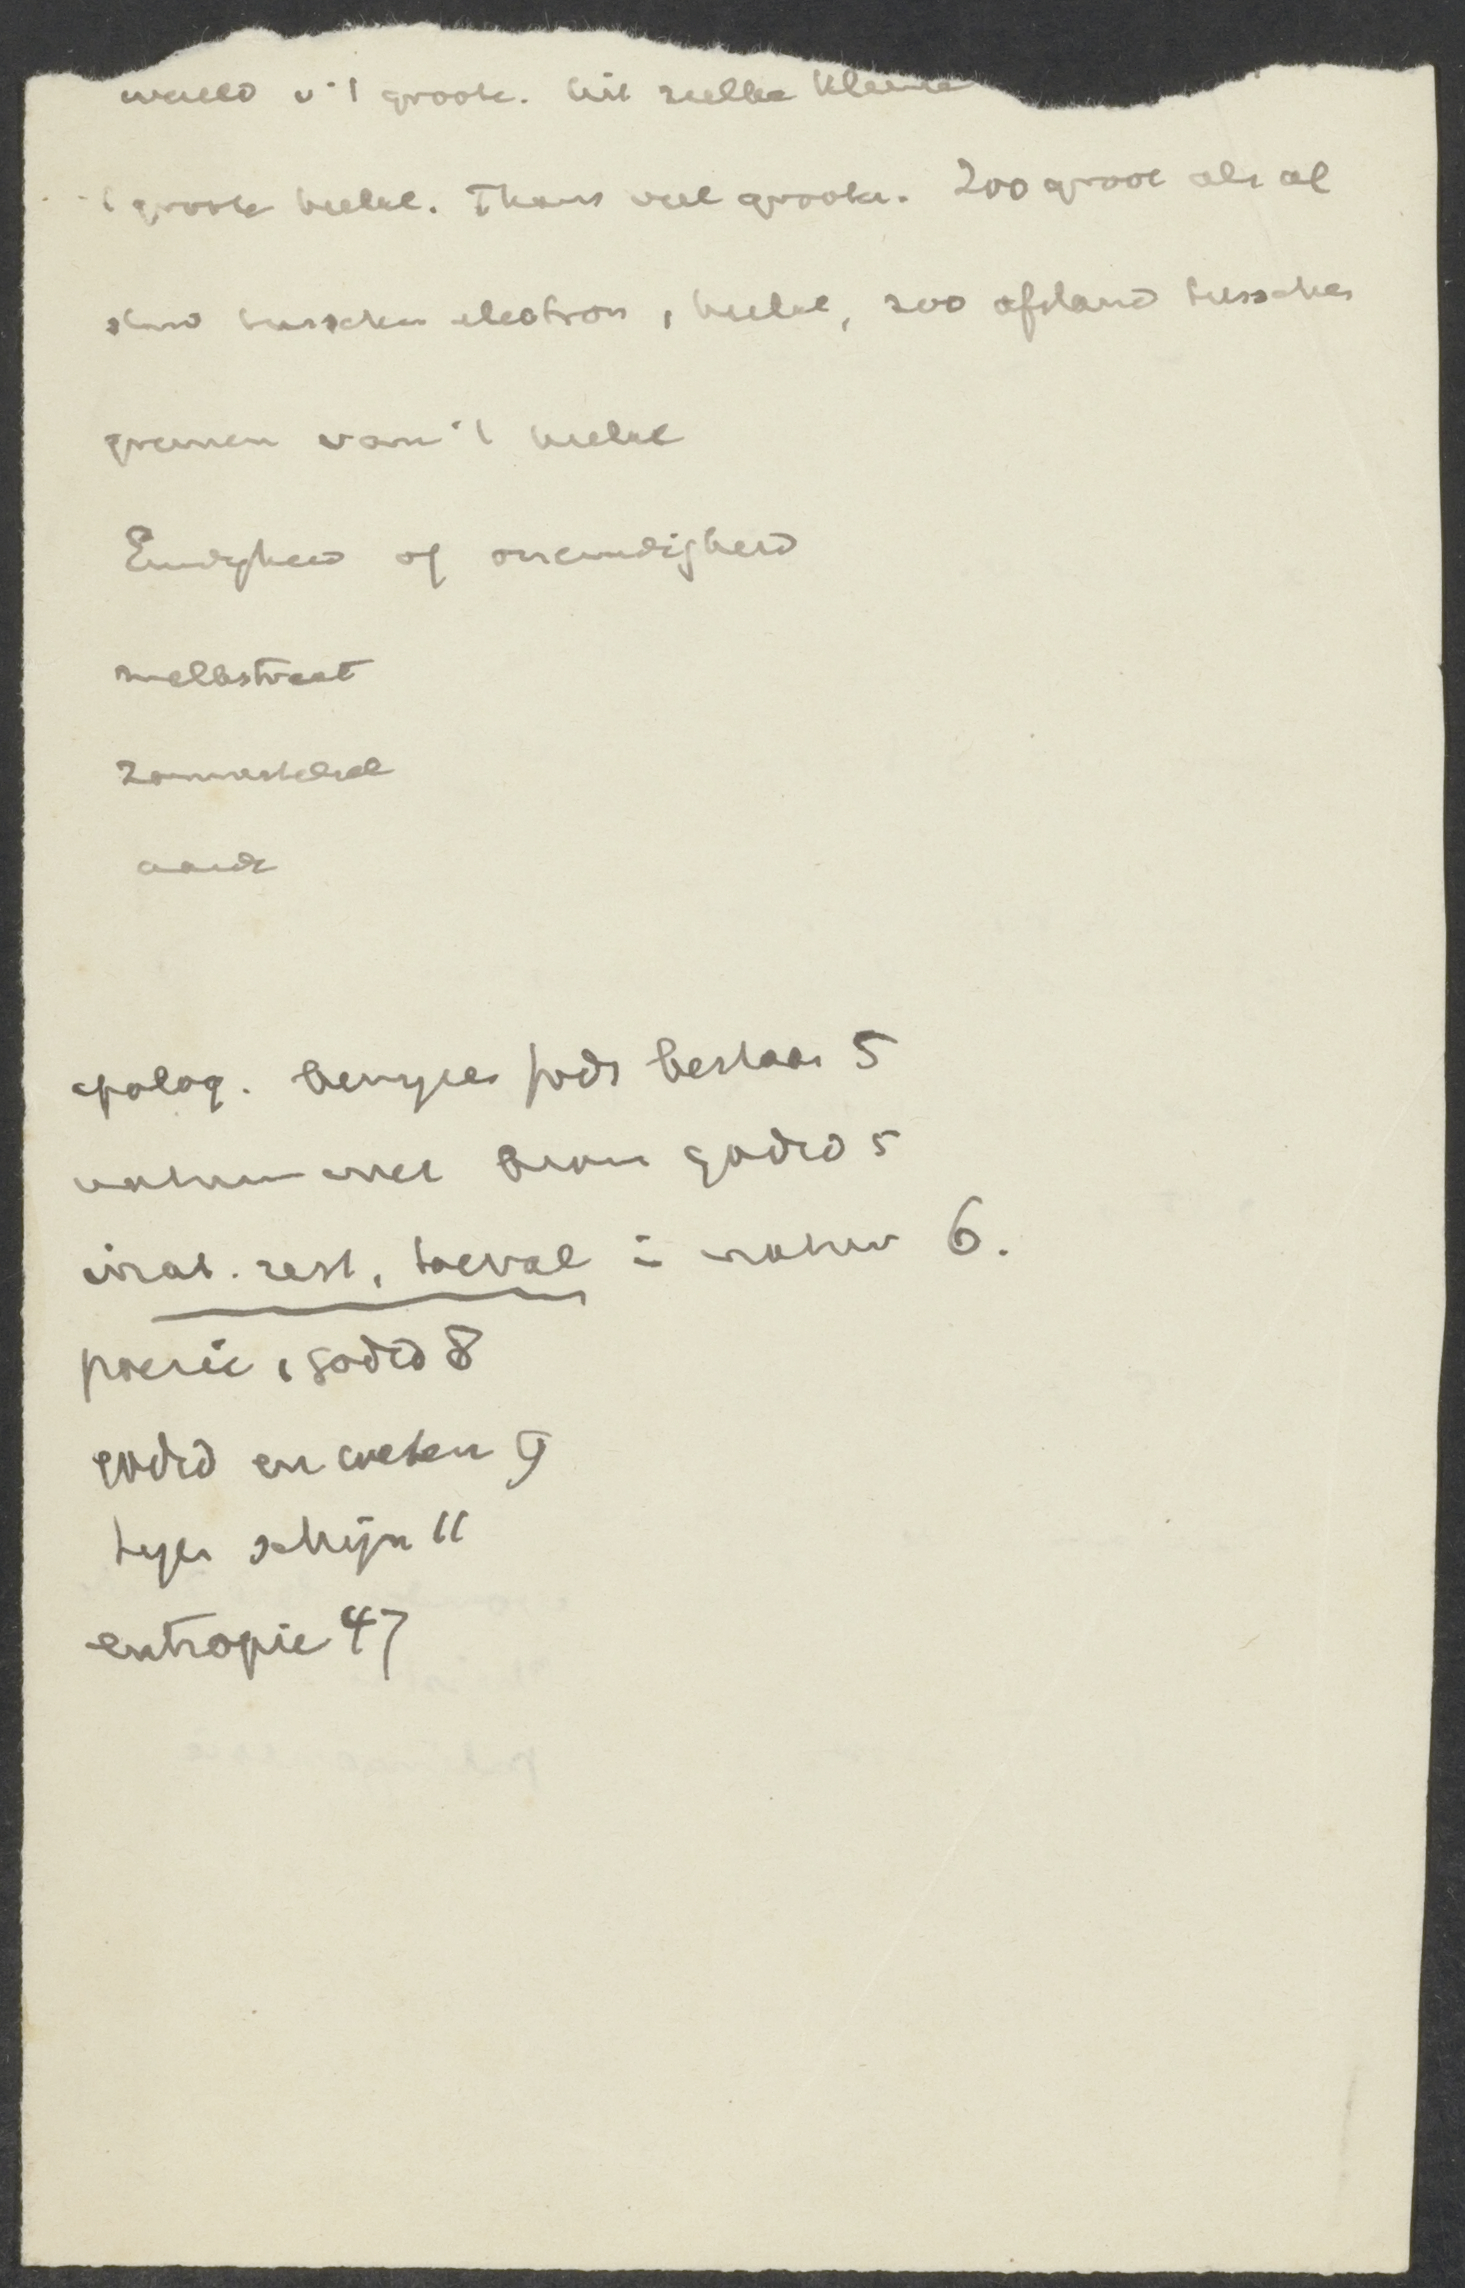 wereld v 't groote. Uit zelfde kleine
't groote heelal. Thans veel grooter. Zoo groot als af
stand tusschen electron, heelal, zoo afstand tusschen
grenzen van 't heelal
Eindigheid of oneindigheid
melkstraat
zonnestelsel
aarde
apolog. bewijzen gods bestaan 5
natuur bron godsd 5
irrat. rest, toeval i natuur 6.
poezie, godsd 8
godsd en weten 9
schijn 11
entropie 47